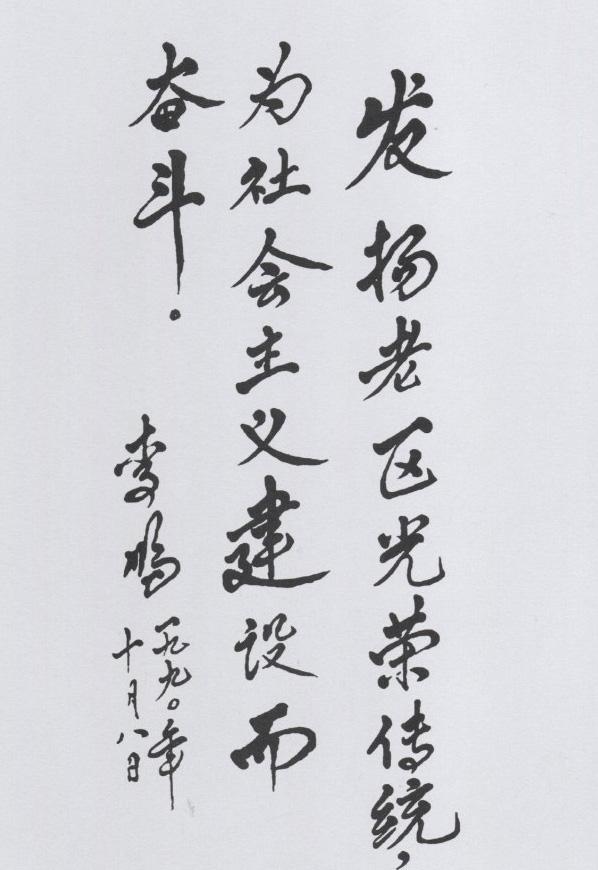 发扬老区光荣传统，
为社会主义建设而
奋斗．
李鹏
一九九〇年
十月八日